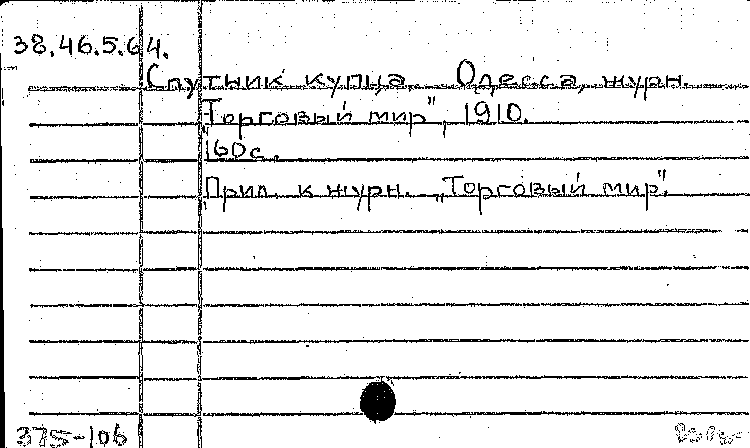 38.46.5.64.
Спутник купца. Одесса, журн.
"Торговый мир", 1910.
160с.
Прил. к журн. „Торговый мир".
375-106